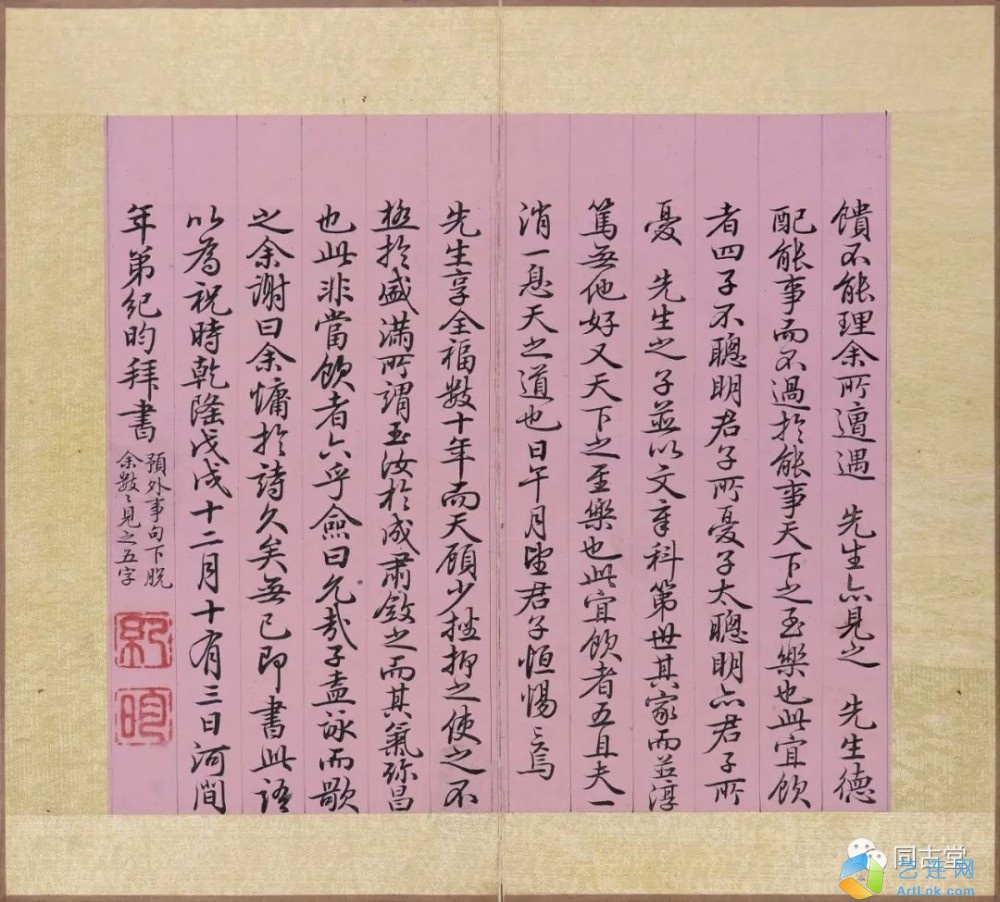 馈不能理余所遭遇　先生亦見之　先生德
配能事而不過於能事天下之至樂也此宜飲
者四子不聰明君子所憂子太聰明亦君子所
憂　先生之子並以文章科第世其家而並淳
篤無他好又天下之至樂也此宜飲者五且夫一
消一息天之道也日午月望君子恒惕惕焉
先生享全福數十年而天顧少挫抑之使之不
極於盛滿所謂玉汝於成肅斂之而其氣弥昌
也此非當飲者六乎僉曰允哉子盍詠而歌
之余謝曰余慵於詩久矣無已即書此語
以為祝時乾隆戊戌十二月十有三日河間
年第紀昀拜書
預外事句下脫
余數ミ見之五字
紀
昀
同古堂
艺连网
ArtLnk.com